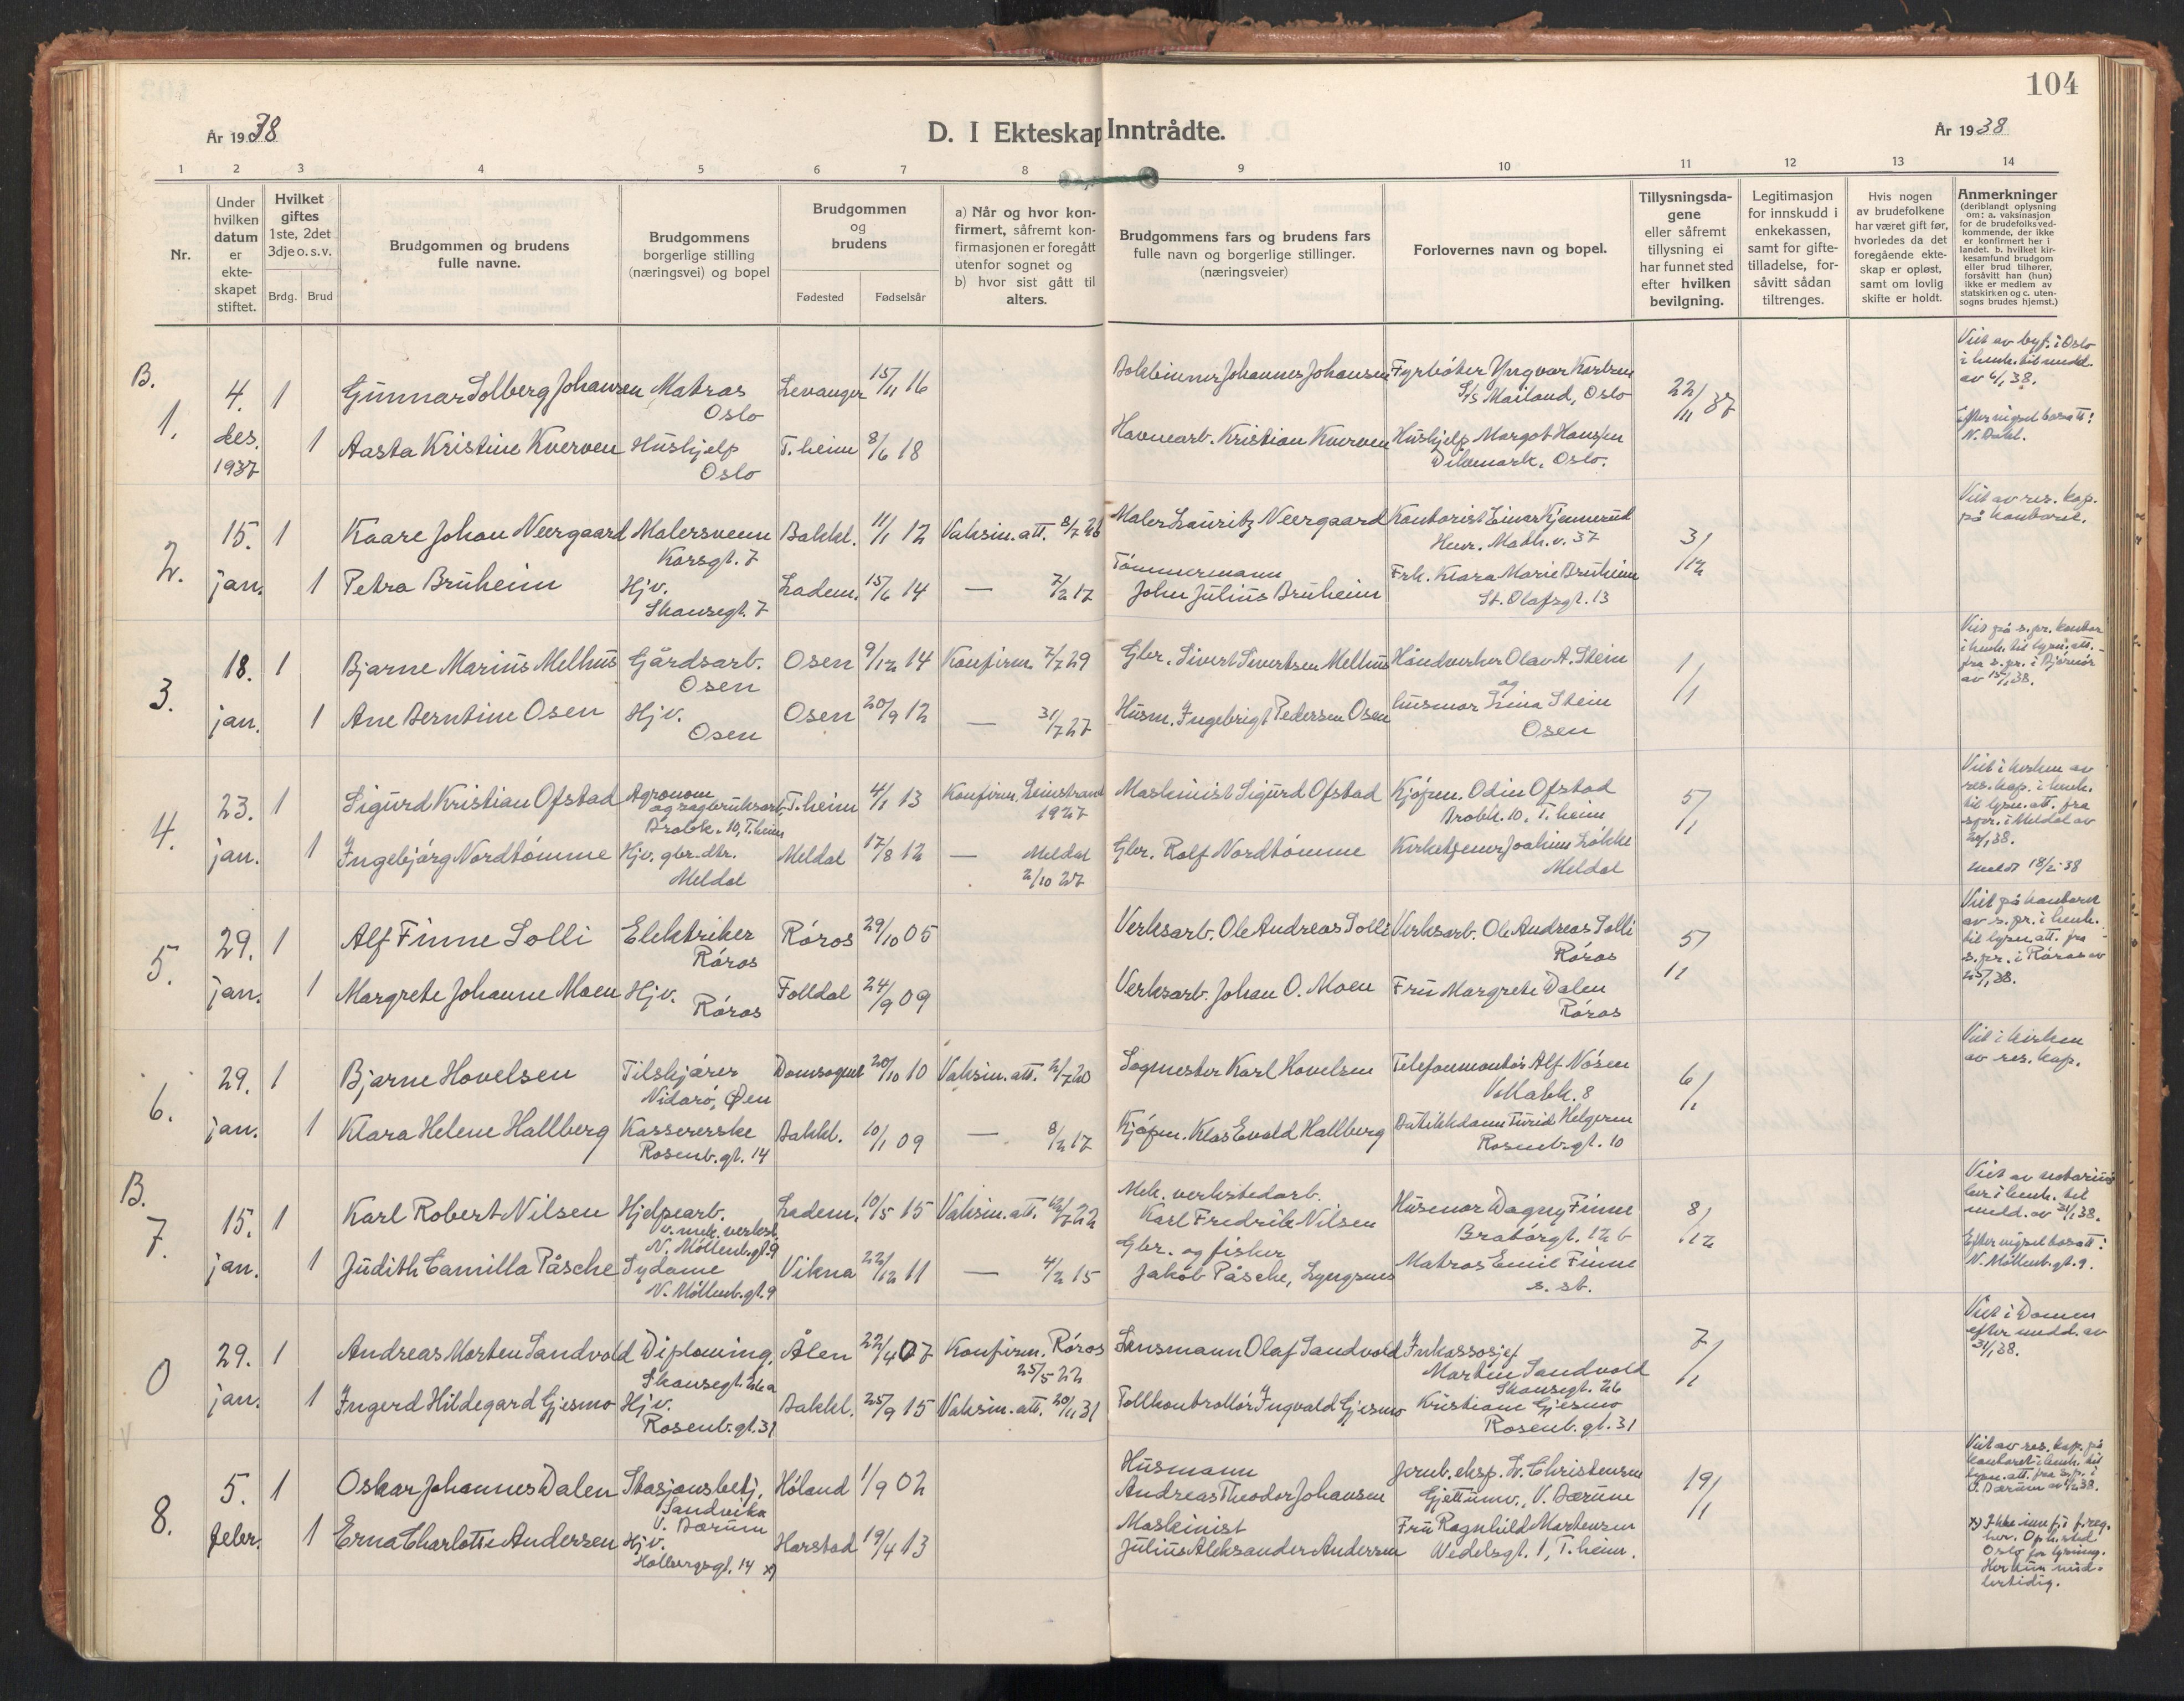 104
År 1938
D. I Ekteskap Inntrådte.
År 1938
1 2 3 4 5 6 7 8 9 10 11 12 13 14
Nr.
Under hvilken datum er ekte-skapet stiftet.
Hvilket giftes 1ste, 2det 3dje o. s. v.
Brdg. Brud
Brudgommen og brudens fulle navne.
Brudgommens borgerlige stilling (næringsvei) og bopel
Brudgommen og brudens
Fødested Fødselsår
a) Når og hvor kon-firmert, såfremt kon-firmasjonen er foregått utenfor sognet og
b) hvor sist gått til alters.
Brudgommens fars og brudens fars fulle navn og borgerlige stillinger. (næringsveier)
Forlovernes navn og bopel.
Tillysningsda-gene eller såfremt tillysning ei har funnet sted efter hvilken bevilgning.
Legitimasjon for innskudd i enkekassen, samt for gifte-tilladelse, for-såvitt sådan tiltrenges.
Hvis nogen av brudefolkene har været gift før, hvorledes da det foregående ekte-skap er opløst, samt om lovlig skifte er holdt.
Anmerkninger (deriblandt oplysning om: a. vaksinasjon for de brudefolk ved-kommende, der ikke er konfirmert her i landet. b. hvilket kir-kesamfund brudgom eller brud tilhører, forsåvitt han (hun) ikke er medlem av statskirken og c. uten-sogns brudes hjemst.)
B.
1. 4. des. 1937
1 Gunnar Solberg Johansen Matros Oslo Levanger 15/11 16
Bokbinner Johannes Johansen Fyrbøter Yngvar Karlsen S/s Mailand, Oslo 22/11 37
Viet av byf. i Oslo i henh. til medd. av 6/1 38.
1 Aasta Kristine Kverven Hushjelp Oslo T.heim 8/6 18
Havnearb. Kristian Kverven Hushjelp Margot Hansen Dikemark, Oslo.
Efter vigsel bosatt: N. Dahl.
2. 15. jan.
1 Kaare Johan Neergaard Malersvenn Korsgt. 7 Bakkl. 11/1 12 Vaksin. att. 8/7 26
Maler Lauritz Neergaard Kontorist Einar Kjennerud Henr. Math. v. 37 3/12
Viet av res. kap. på kontoret.
1 Petra Bruheim Hjv. Skansegt. 7 Ladem. 15/6 14 — 7/2 17
Tømmermann John Julius Bruheim Frk. Klara Marie Bruheim St. Olafsgt. 13
3. 18. jan.
1 Bjarne Marius Melhus Gårdsarb. Osen Osen 9/12 14 Konfirm. 7/7 29
Gbr. Sivert Sivertsen Melhus Håndverker Olav A. Stein og 1/1
Viet på s.pr. kontor i henh. til lysn. att. fra s.pr. i Bjørnør av 15/1 38.
1 Ane Berntine Osen Hjv. Osen Osen 20/9 12 — 31/7 27
Husm. Ingebrigt Pedersen Osen husmor Lina Stein Osen
4. 23. jan.
1 Sigurd Kristian Ofstad Agronom og sagbruksarb. Brobk. 10, T.heim T.heim 4/1 13 Konfirm. Leinstrand 1927
Maskinist Sigurd Ofstad Kjøpm. Odin Ofstad Brobk. 10, T.heim 5/1
Viet i kirken av res. kap. i henh. til lysn. att. fra s.pr. i Meldal av 20/1 38.
1 Ingebjørg Nordtømme Hjv. gbr.dtr. Meldal Meldal 17/8 12 — Meldal 2/10 27
Gbr. Rolf Nordtømme Kirketjener Joakim Løkke Meldal
meldt 18/2 38
5. 29. jan.
1 Alf Finne Solli Elektriker Røros Røros 29/10 05
Verksarb. Ole Andreas Solli Verksarb. Ole Andreas Solli Røros 5/11
Viet på kontoret av s.pr. i henh. til lysn. att. fra s.pr. i Røros av 25/1 38.
1 Margrete Johanne Moen Hjv. Røros Folldal 24/9 09
Verksarb. Johan O. Moen Fru Margrete Dalen Røros
6. 29. jan.
1 Bjarne Hovelsen Tilskjærer Nidarø, Øen Domsognet 20/10 10 Vaksin. att. 2/7 20
Sagmester Karl Hovelsen Telefonmontør Alf Nøsen Vollabk. 8 6/1
Viet i kirken av res. kap.
1 Klara Helene Hallberg Kassererske Rosenb.gt. 14 Bakkl. 10/1 09 — 8/2 17
Kjøpm. Klas Evald Hallberg Butikkdame Turid Helgesen Rosenb.gt. 10
B.
7. 15. jan.
1 Karl Robert Nilsen Hjelpearb. v. mek. verkst. N. Møllenb.gt. 9 Ladem. 10/5 15 Vaksin. att. 12/7 22
Mek. verkstedarb. Karl Fredrik Nilsen Husmor Dagny Finne Bratørgt. 12 b 8/12
Viet av notarius her i henh. til meld. av 31/1 38.
1 Judith Camilla Påsche Sydame N. Møllenb.gt. 9 Vikna 22/12 11 — 4/2 15
Gbr. og fisker Jakob Påsche, Lyngsnes Matros Emil Finne s. st.
Efter vigsel bosatt: N. Møllenb.gt. 9.
0 29. jan.
1 Andreas Morten Sandvold Diploming. Skansegt. 26a Ålen 22/4 07 Konfirm. Røros 25/5 22
Lensmann Olaf Sandvold Inkassosjef Martin Sandvold Skansegt. 26 7/1
Viet i Domen efter medd. av 31/1 38.
1 Ingerd Hildegard Gjesmo Hjv. Rosenb.gt. 31 Bakkl. 25/9 15 Vaksin. att. 20/11 31
Tollkontrollør Ingvald Gjesmo Kristiane Gjesmo Rosenb.gt. 31
8. 5. febr.
1 Oskar Johannes Dalen Stasjonsbetj. Sandvika V. Bærum Høland 1/9 02
Husmann Andreas Theodor Johansen Jernb.eksp. L. Christensen Gjettumv., V. Bærum 19/1
Viet av res. kap. på kontoret i henh. til lysn. att. fra s.pr. i V. Bærum av 1/2 38.
1 Erna Charlotte Andersen Hjv. Holbergsgt. 14 x) Harstad 19/4 13
Maskinist Julius Aleksander Andersen Fru Ragnhild Mortensen Wedelsgt. 1, T.heim.
x) Ikke innf. i f.reg. her. Oph. sted Oslo før lysning. Her kun mid-lertidig.